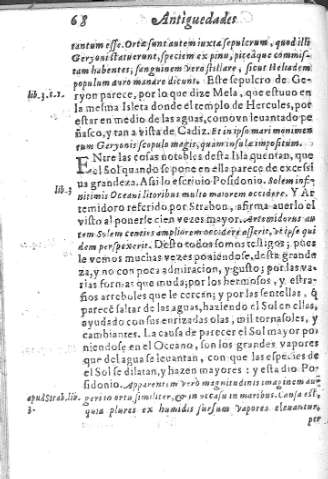 68 Antiguedades
tantum esse. Ortæ sunt autem iuxta sepulcrum, quod illi
Geryoni statuerunt, speciem ex pinu, piceáque commis-
tam habentes, sanguinem vero stillare, sicut Heliadem
populum auro manare dicunt. Este sepulcro de Ge-
lib.3.c.2. ryon parece, por lo que dize Mela, que estuuo en
la mesma Isleta donde el templo de Hercules, por
estar en medio de las aguas, como vn leuantado pe
ñasco, y tan a vista de Cadiz. Et in ipso mari monimen
tum Geryonis scopulo magis, quàm insulæ impositum.
ENtre las cosas notables desta Isla quentan, que
el Sol quando se pone en ella parece de excessi
ua grandeza. Assi lo escriuio Posidonio. Solem in fi-
lib.3 nitimis Oceani litoribus multo maiorem occidere. Y Ar
temidoro referido por Strabon, afirma auerlo el
visto al ponerse cien vezes mayor. Artemidorus au
tem Solem centies ampliorem occidere asserit, et ipse qui
dem perspexerit. Desto todos somos testigos; pues
le vemos muchas vezes poniendose, desta grande
za, y no con poca admiracion, y gusto; por las va-
rias formas que muda; por los hermosos, y estra-
ños arreboles que le cercan; y por las sentellas, q̃
parece saltar de las aguas, haziendo el Sol en ellas,
ayudado con sus enrizadas olas, mil tornasoles, y
cambiantes. La causa de parecer el Sol mayor po
niendose en el Oceano, son los grandes vapores
que del agua se leuantan, con que las especies de
el Sol se dilatan, y hazen mayores: y esta dio Po-
sidonio. Apparentem verò magnitudinis imaginem au
apud Strab. lib. geri in ortu similiter, & in occasu in maribus. Causa est,
3. quia plures ex humidis sursum vapores eleuantur,
per